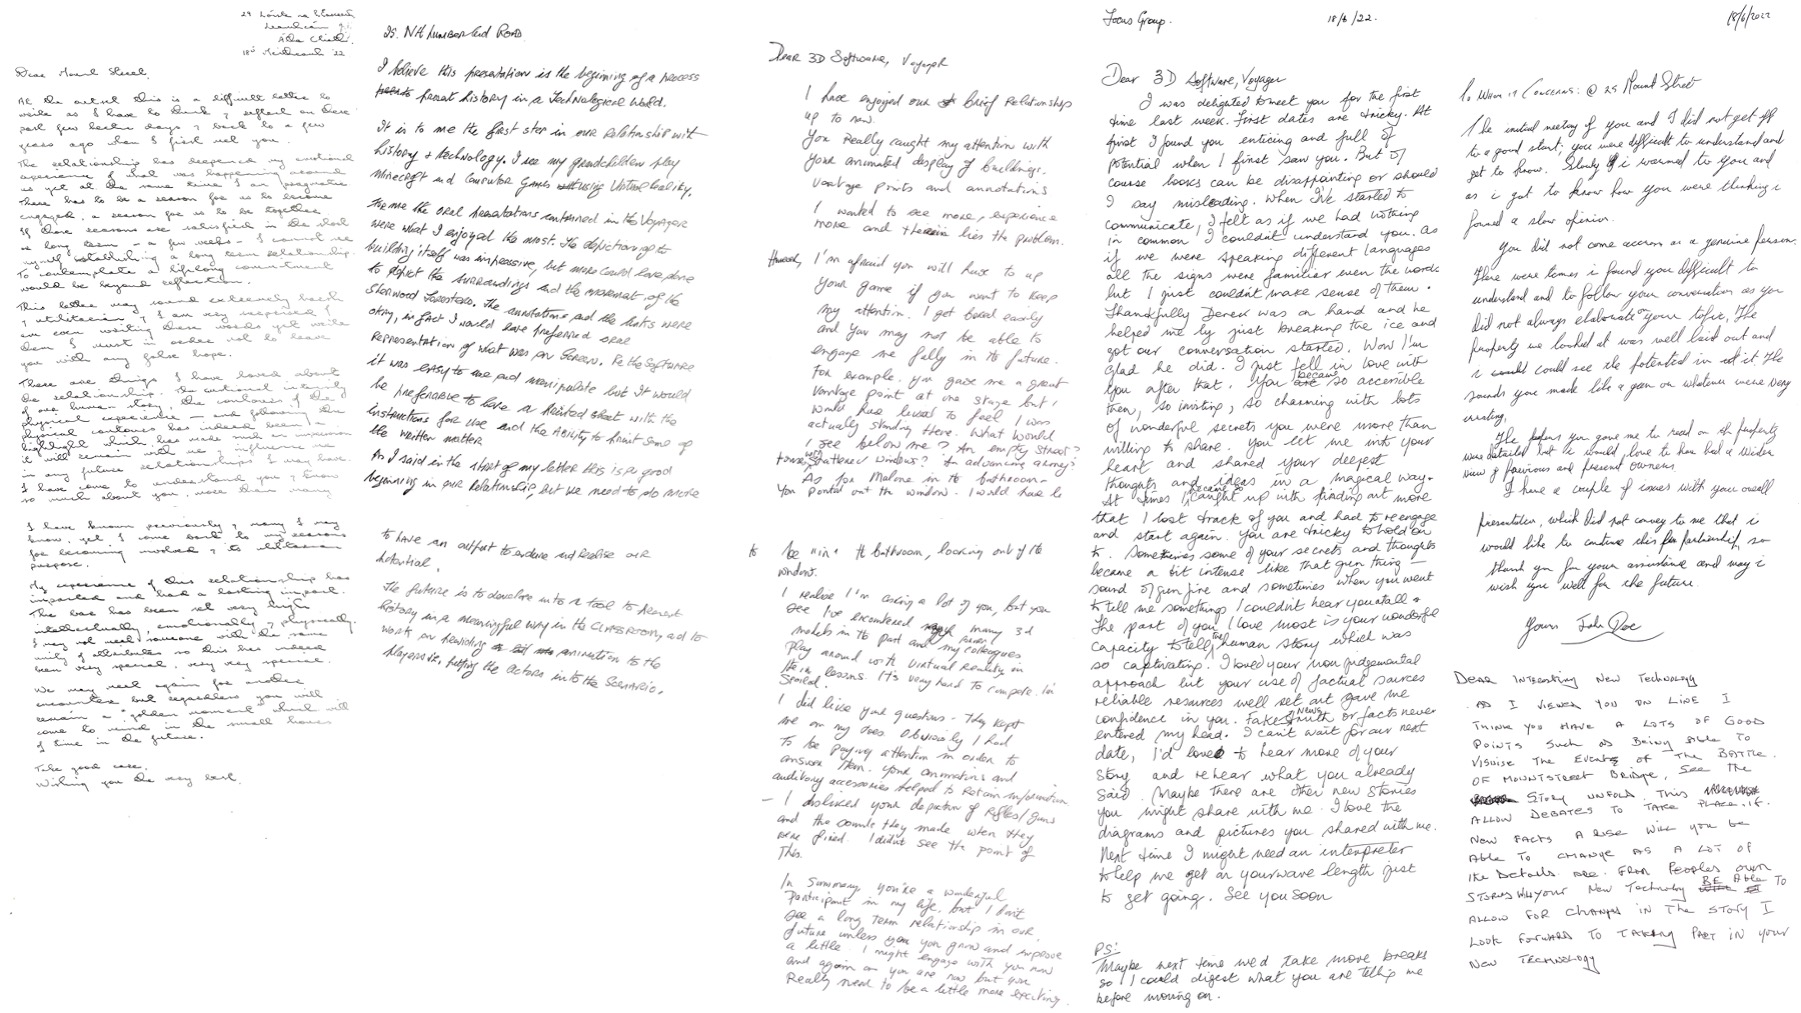 18ú Meitheamh '22
Dear Mount Street,
At the outset this is a difficult letter to
write as I have to think & reflect on these
past few hectic days & back to a few
years ago when I first met you.
The relationship has deepened my emotional
experience of what was happening around
us yet at the same time I am pragmatic
There has to be a season for us to become
engaged, a season for us to be together
If those seasons are satisfied in the short
or long term - a few weeks - I cannot see
myself establishing a long term relationship.
To contemplate a lifelong commitment
would be beyond reflection.
This letter may sound extremely harsh
& utilitarian & I am very surprised I
am even writing these words yet write
them I must in order not to leave
you with any false hope.
There are things I have loved about
the relationship. The emotional intensity
of our human story, the contours of the
physical experience - and following the
physical contours has indeed been a
highlight which has made such an impression
it will remain with me & influence me
in any future relationships I may have.
I have come to understand you & know
so much about you, more than many
I have known previously & many I may
know, yet, I come back to my reasons
for becoming involved & its utilitarian
purpose.
My experience of this relationship has
imparted and had a lasting impact.
The bar has been set very high
intellectually, emotionally & physically.
I may not meet someone with the same
unity of attributes so this has indeed
been very special, very very special.
We may meet again for another
encounter but regardless you will
remain a "golden moment" which will
come to mind in the small hours
of time in the future.
Take good care,
Wishing you the very best.
25. Northumberland Road
I believe this presentation is the beginning of a process
present history in a Technological World.
It is to me the first step in our relationship with
history + technology. I see my grandchildren play
Minecraft and Computer Games using Virtual Reality.
For me the oral presentations contained in the Voyager
were what I enjoyed the most. The depiction of the
building itself was impressive, but more could have done
to depict the surroundings and the movement of the
Sherwood Foresters. The annotations and the links were
okay, in fact I would have preferred oral
representation of what was on screen. Re the Software
it was easy to use and manipulate but it would
be preferable to have a printed sheet with the
instructions for use and the ability to print some of
the written matter
As I said in the start of my letter this is a good
beginning in our Relationship, but we need to do more
to have an output to endure and realise our
potential.
The future is to develop into a tool to present
history in a meaningful way in the CLASSROOM, and to
work on providing animation to the
players ie. putting the actors into the Scenario.
Dear 3D Software, Voyager
I have enjoyed our brief relationship
up to now.
You Really caught my attention with
your animated display of buildings,
vantage points and annotations
I wanted to see more, experience
more and therein lies the problem.
However, I'm afraid you will have to up
your game if you want to keep
my attention. I get bored easily
and you may not be able to
engage me fully in to future.
For example. You gave me a great
vantage point at one stage but I
would have loved to feel I was
actually standing there. What would
I see below me? An empty street?
Houses with shattered windows? An advancing army?
As for Malone in the bathroom-
You pointed out the window. I would have lo
to be "in" the bathroom, looking out of the
window.
I realise I'm asking a lot of you, but you
see I've encountered many 3d
models in the past and my younger colleagues
play around with Virtual Reality in
their lessons. It's very hard to compete. I'm
Spoiled!
I did like your questions - They kept
me on my toes. Obviously I had
to be paying attention in order to
answer them. Your animations and
auditory accessories helped to retain information
- I disliked your depiction of Rifles/guns
and the sounds they made when they
were fired. I didn't see the point of
This.
In Summary you're a wonderful
Participant in my life, but I don't
see a long term relationship in our
future unless you grow and improve
a little. I might engage with you now
and again as you are now but you
Really need to be a little more exciting.
Focus Group. 18/6/22.
Dear 3D Software, Voyager
I was delighted to meet you for the first
time last week. First dates are tricky. At
first I found you enticing and full of
potential when I first saw you. But of
course looks can be disappointing or should
I say misleading. When I've started to
communicate, I felt as if we had nothing
in common I couldn't understand you. As
if we were speaking different languages
all the signs were familiar even the words
but I just couldn't make sense of them.
Thankfully Derek was on hand and he
helped me by just breaking the ice and
got our conversation started. Wow I'm
glad he did. I just fell in love with
you after that. You became so accessible
then, so inviting, so charming with lots
of wonderful secrets you were more than
willing to share. You let me into your
heart and shared your deepest
thoughts and ideas in a magical way.
At times I became so caught up with finding out more
that I lost track of you and had to re engage
and start again. You are tricky to hold on
to. Sometimes some of your secrets and thoughts
became a bit intense like that gun thing -
sound of gun fire and sometimes when you went
to tell me something I couldn't hear you at all.
The part of you I love most is your wonderful
capacity to tell the human story which was
so captivating. I loved your non judgemental
approach but your use of factual sources
reliable resources well set out gave me
confidence in you. Fake news truth or facts never
entered my head. I can't wait for our next
date, I'd love to hear more of your
story and re hear what you already
said. Maybe there are other new stories
you might share with me. I love the
diagrams and pictures you shared with me.
Next time I might need an interpreter
to help me get on your wave length just
to get going. See you soon
PS:
Maybe next time we'd take more breaks
so I could digest what you are telling me
before moving on.
18/6/2022
To Whom it Concerns: @ 25 Mount Street
The initial meeting of you and I did not get off
to a good start, you were difficult to understand and
get to know. Slowly i warmed to you and
as i got to know how you were thinking i
formed a slow opinion.
You did not come across as a genuine person.
There were times i found you difficult to
understand and to follow your conversation as you
did not always elaborate your topic, The
property we looked at was well laid out and
i could see the potential in it The
sounds you made like a gun or whatever were very
exciting.
The papers you gave me to read on the property
were detailed but i would love to have had a wider
view of previous and present owners.
I have a couple of issues with your overall
presentation, which did not convey to me that i
would like to continue this partnership, so
thank you for your assistance and may i
wish you well for the future.
Yours John Doe
Dear Interesting New Technology
As I viewed you on line I
think you have a lots of good
points such as being able to
visuise the events of the Battle
of Mountstreet Bridge, see the
story unfold. This
allow debates to take place. if
new facts a rise will you be
able to change as a lot of
the details are from peoples own
storys will your new technology be able to
allow for changes in the story I
look forward to taking part in your
new technology